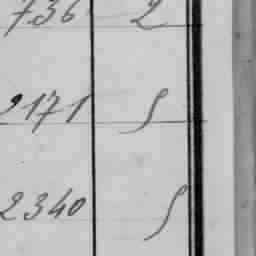 736 2
2171 5
2340 5